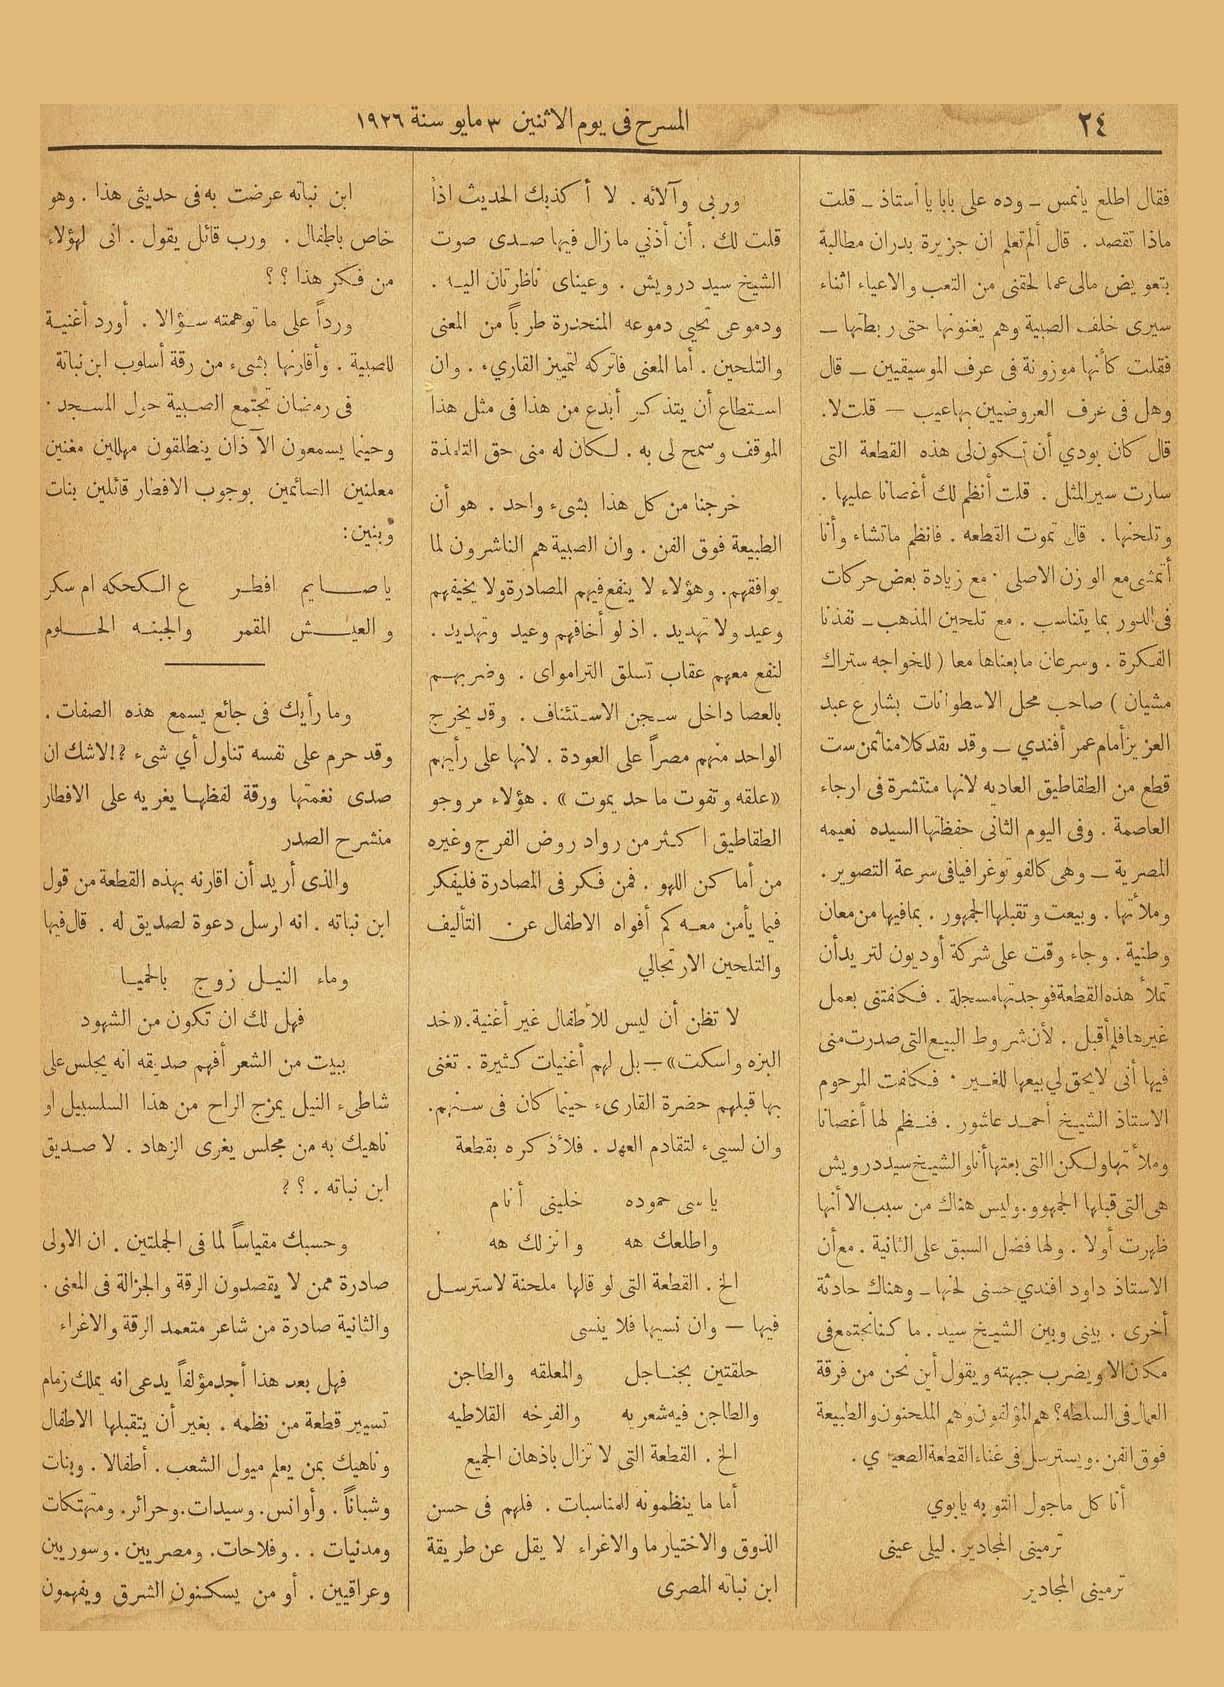 ٢٤
المسرح فى يوم الاثنين ٣ مايو سنة ١٩٢٦
فقال اطلع يانمس ــ وده على بابا يا أستاذ ــ قلت
ماذا تقصد . قال ألم تعلم ان جزيرة بدران مطالبة
بتعويض مالى عما لحقنى من التعب والاعياء اثناء
سيرى خلف الصبية وهم يغنونها حتى ربطتها ــ
فقلت كأنها موزونة فى عرف الموسيقيين ــ قال
وهل فى عرف العروضيين بها عيب — قلت لا.
قال كان بودي أن تكون لى هذه القطعة التى
سارت سير المثل . قلت أنظم لك أغصانا عليها .
وتلحنها . قال تموت القطعه . فانظم ما تشاء وأنا
أتمشى مع الوزن الاصلى . مع زيادة بعض حركات
فى الدور بما يتناسب . مع تلحين المذهب ــ نفذنا
الفكرة . وسرعان ما بعناها معا ( للخواجه ستراك
مشيان ) صاحب محل الاسطوانات بشارع عبد
العزيز أمام عمر أفندي ــ وقد نقد كلا منا ثمن ست
قطع من الطقاطيق العاديه لانها منتشرة فى ارجاء
العاصمة . وفى اليوم الثانى حفظتها السيده نعيمه
المصرية ــ وهى كالفوتوغرافيا فى سرعة التصوير .
وملأتها . وبيعت وتقبلها الجمهور . بما فيها من معان
وطنية . وجاء وقت على شركة أوديون لتريد أن
تملأ هذه القطعة فوجدتها مسجلة . فكلفتنى بعمل
غيرها فلم أقبل . لأن شروط البيع التى صدرت منى
فيها أنى لايحق لي بيعها للغير . فكلفت المرحوم
الاستاذ الشيخ أحمد عاشور . فنظم لها أغصانا
وملأتها ولكن االتى بعتها أنا والشيخ سيد درويش
هى التى قبلها الجمهوو. وليس هناك من سبب الا أنها
ظهرت أولا . ولها فضل السبق على الثانية . مع أن
الاستاذ داود افندي حسنى لحنها ــ وهناك حادثة
أخرى . بينى وبين الشيخ سيد . ما كنا نجتمع فى
مكان الا ويضرب جبهته ويقول أين نحن من فرقة
العمال فى السلطه؟ هم المؤلفون وهم الملحنون والطبيعة
فوق الفن. ويسترسل فى غناء القطعة الصعيدي .
أنا كل ماجول انتوبه يابوي
ترمينى المجادير . ليلى عينى
ترمينى المجادير
وربى وآلائه . لا أكذبك الحديث اذا
قلت لك . أن أذني ما زال فيها صدى صوت
الشيخ سيد درويش . وعيناى ناظرتان اليه .
ودموعى تحيى دموعه المنحدرة طرباً من المعنى
والتلحين . أما المعنى فاتركه لتمييز القاريء . وان
استطاع أن يتذكر أبدع من هذا فى مثل هذا
الموقف وسمح لى به . لكان له منى حق التلمذة
خرجنا من كل هذا بشىء واحد . هو أن
الطبيعة فوق الفن . وان الصبية هم الناشرون لما
يوافقهم. وهؤلاء لا ينفع فيهم المصادرة ولا يخيفهم
وعيد ولا تهديد . اذ لو أخافهم وعيد وتهديد .
لنفع معهم عقاب تسلق الترامواى . وضربهم
بالعصا داخل سجن الاستئناف . وقد يخرج
الواحد منهم مصراً على العودة . لانها على رأيهم
«علقه وتفوت ما حد يموت » . هؤلاء مروجو
الطقاطيق اكثر من رواد روض الفرج وغيره
من أماكن اللهو . فمن فكر فى المصادرة فليفكر
فيما يأمن معه كم أفواه الاطفال عن التأليف
والتلحين الارتجالي
لا تظن أن ليس للأطفال غير أغنية. «خد
البزه واسكت» — بل لهم أغنيات كثيرة . تغنى
بها قبلهم حضرة القارىء حينما كان فى سنهم.
وان لسيىء لتقادم العهد . فلأذكره بقطعة
ياسى حموده خلينى أنام
واطلعك هه وانزلك هه
الخ . القطعة التى لو قالها ملحنة لاسترسل
فيها — وان نسيها فلا ينسى
حلقتين بجناجل والمعلقه والطاجن
والطاجن فيه شعريه والفرخه القلاطيه
الخ . القطعة التى لا تزال باذهان الجميع
أما ما ينظمونه للمناسبات . فلهم فى حسن
الذوق والاختيار ما والاغراء لا يقل عن طريقة
ابن نباته المصرى
ابن نباته عرضت به فى حديثى هذا . وهو
خاص باطفال . ورب قائل يقول . انى لهؤلاء
من فكر هذا ؟ ؟
ورداً على ما توهمته سؤالا . أورد أغنية
للصبية . وأقارنها بشىء من رقة أسلوب ابن نباتة
فى رمضان تجتمع الصبية حول المسجد .
وحينما يسمعون الآذان ينطلقون مهللين مغنين
معلنين الصائمين بوجوب الافطار قائلين بنات
وبنين:
يا صـايم افطر ع الكحكه ام سكر
والعيـش المقمر والجبنه الحلوم
وما رأيك فى جائع يسمع هذه الصفات .
وقد حرم على نفسه تناول أي شىء ؟! لاشك ان
صدى نغمتها ورقة لفظها يغريه على الافطار
منشرح الصدر
والذى أريد أن اقارنه بهذه القطعة من قول
ابن نباته . انه ارسل دعوة لصديق له . قال فيها
وماء النيل زوج بالحميا
فهل لك ان تكون من الشهود
ببيت من الشعر أفهم صديقه انه يجلس على
شاطىء النيل يمزج الراح من هذا السلسبيل او
ناهيك به من مجلس يغرى الزهاد . لا صديق
ابن نباته . ؟ ؟
وحسبك مقياساً لما فى الجملتين . ان الاولى
صادرة ممن لا يقصدون الرقة والجزالة فى المعنى .
والثانية صادرة من شاعر متعمد الرقة والاغراء
فهل بعد هذا أجد مؤلفاً يدعى انه يملك زمام
تسيير قطعة من نظمه . بغير أن يتقبلها الاطفال
وناهيك بمن يعلم ميول الشعب . أطفالا . وبنات
وشباناً . وأوانس. وسيدات. وحرائر. ومتهتكات
ومدنيات . . وفلاحات. ومصريين. وسوريين
وعراقيين . أو من يسكنون الشرق ويفهمون